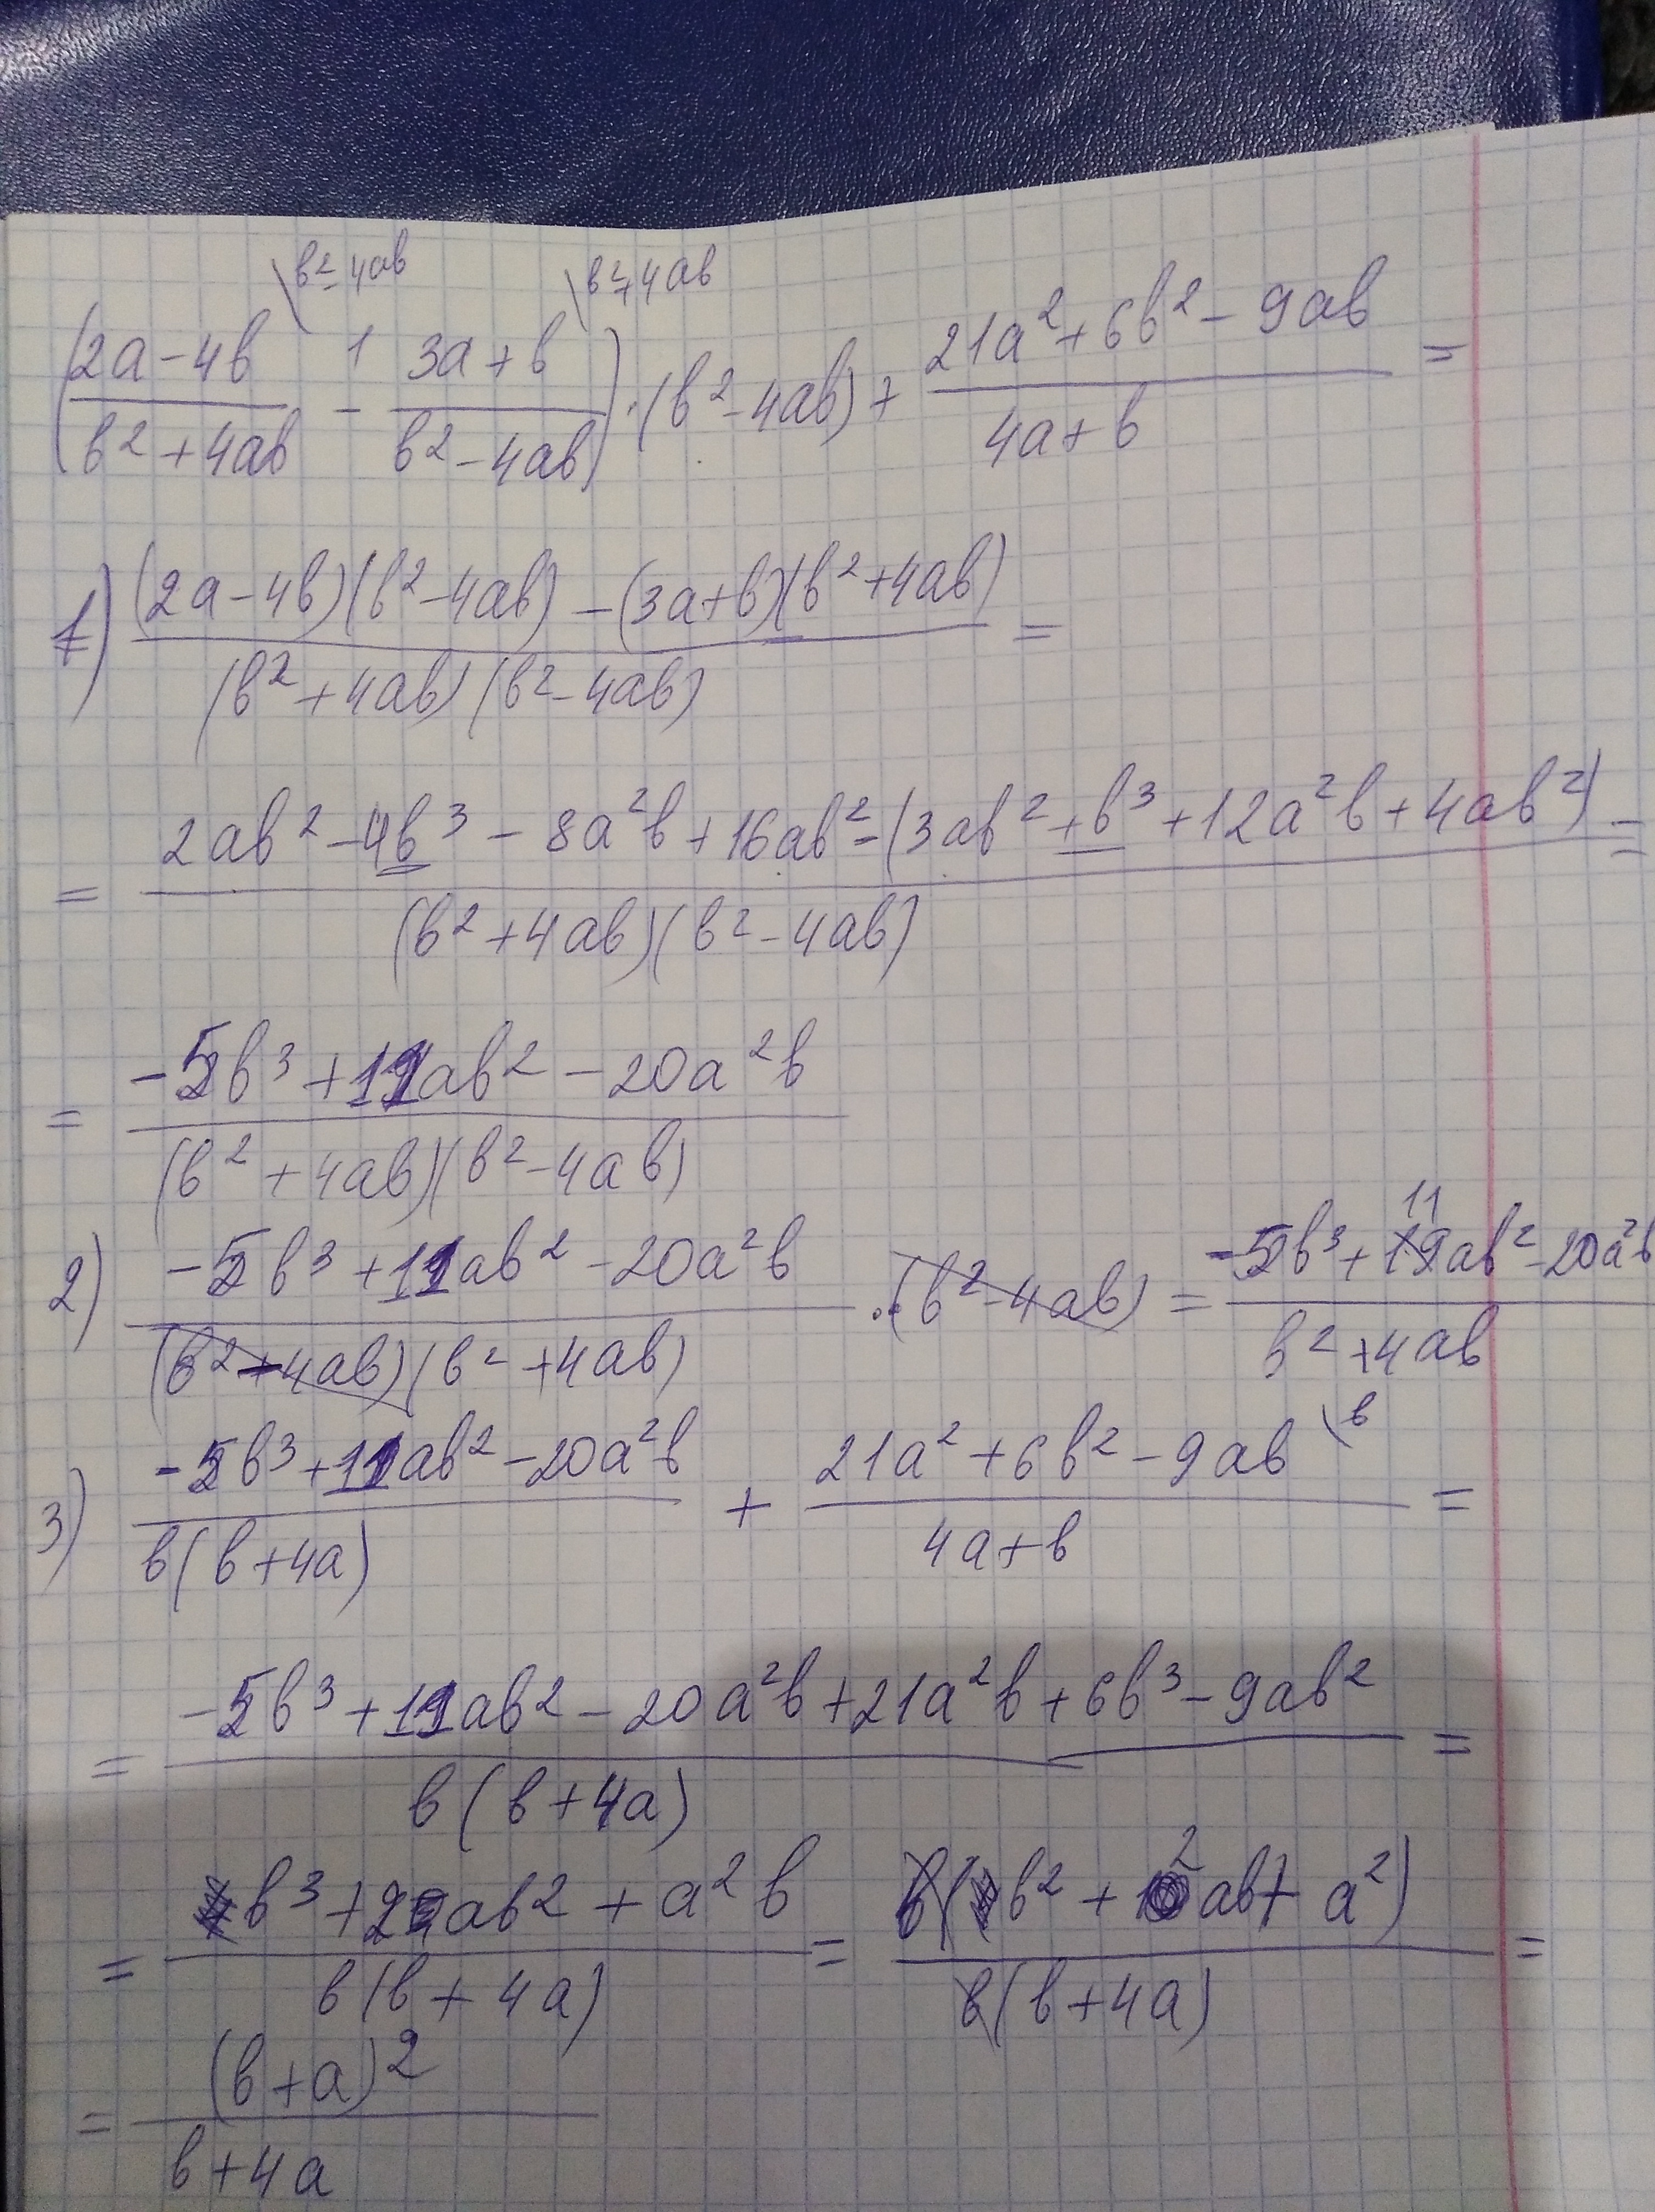 \b²-4ab \b²+4ab
((2a-4b)/(b²+4ab) - (3a+b)/(b²-4ab)) · (b²-4ab) + (21a²+6b²-9ab)/(4a+b) =
1) ((2a-4b)(b²-4ab) - (3a+b)(b²+4ab))/((b²+4ab)(b²-4ab)) =
= (2ab²-4b³-8a²b+16ab²-(3ab²+b³+12a²b+4ab²))/((b²+4ab)(b²-4ab)) =
= (-5b³+11ab²-20a²b)/((b²+4ab)(b²-4ab))
2) (-5b³+11ab²-20a²b)/((b²-4ab)(b²+4ab)) · (b²-4ab) = (-5b³+11ab²-20a²b)/(b²+4ab)
3) (-5b³+11ab²-20a²b)/(b(b+4a)) + (21a²+6b²-9ab \b)/(4a+b) =
= (-5b³+11ab²-20a²b+21a²b+6b³-9ab²)/(b(b+4a)) =
= (b³+2ab²+a²b)/(b(b+4a)) = (b(b²+2ab+a²))/(b(b+4a)) =
= (b+a)²/(b+4a)